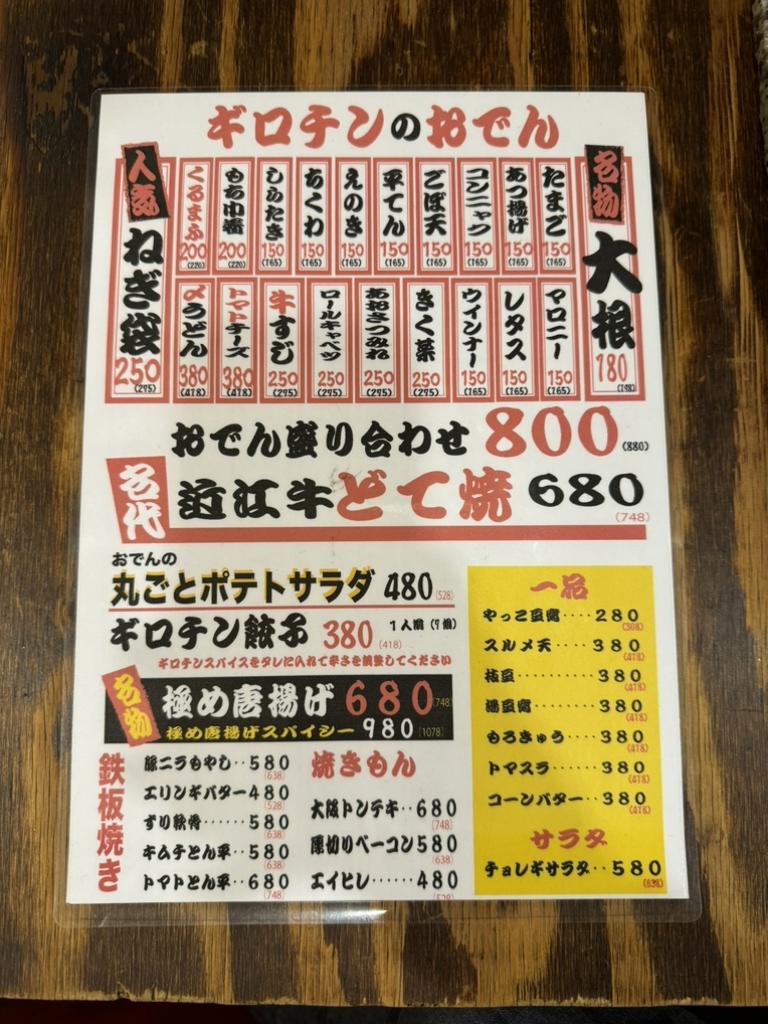 ギロチンのおでん
名物
大根
180
(198)
たまご
150
(165)
あつ揚げ
150
(165)
コンニャク
150
(165)
ごぼ天
150
(165)
平てん
150
(165)
えのき
150
(165)
ちくわ
150
(165)
しらたき
150
(165)
もち巾着
200
(220)
くるまふ
200
(220)
人気
ねぎ袋
250
(275)
マロニー
150
(165)
レタス
150
(165)
ウインナー
150
(165)
きく菜
250
(275)
あおさつみれ
250
(275)
ロールキャベツ
250
(275)
牛すじ
250
(275)
トマトチーズ
380
(418)
〆うどん
380
(418)
おでん盛り合わせ 800 (880)
名代
近江牛どて焼 680
(748)
おでんの
丸ごとポテトサラダ 480 (528)
ギロチン餃子 380 (418) 1人前(7個)
ギロチンスパイスをタレに入れて辛さを調整してください
名物
極め唐揚げ 680 (748)
極め唐揚げスパイシー 980 (1078)
鉄板焼き
豚ニラもやし‥580
(638)
エリンギバター480
(528)
ずり軟骨‥‥‥580
(638)
キムチとん平‥580
(638)
トマトとん平‥680
(748)
焼きもん
大阪トンテキ‥680
(748)
厚切りベーコン580
(638)
エイヒレ‥‥‥480
(528)
一品
やっこ豆腐‥‥280
(308)
スルメ天‥‥380
(418)
枝豆‥‥‥‥‥380
(418)
湯豆腐‥‥‥‥380
(418)
もろきゅう‥‥380
(418)
トマスラ‥‥‥380
(418)
コーンバター‥‥380
(418)
サラダ
チョレギサラダ‥580
(638)